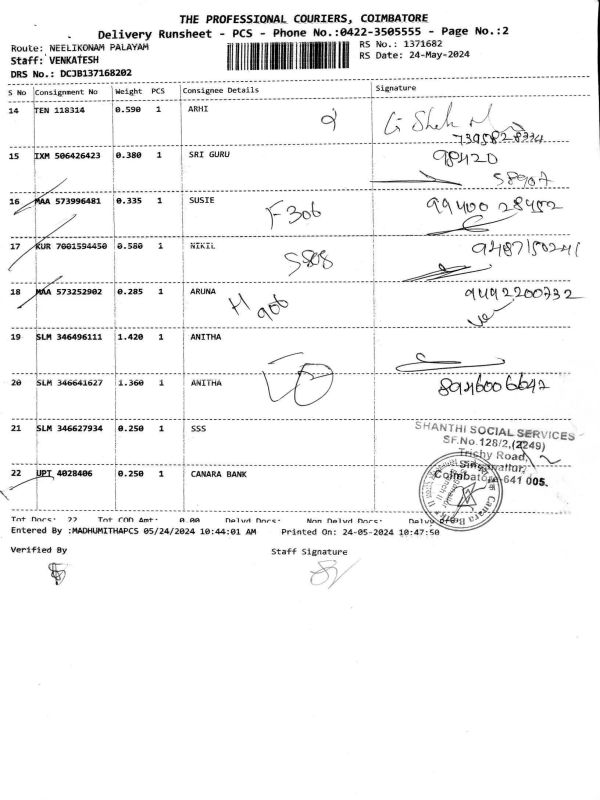 THE PROFESSIONAL COURIERS, COIMBATORE
Delivery Runsheet - PCS - Phone No.:0422-3505555 - Page No.:2
Route: NEELIKONAM PALAYAM
RS No.: 1371682
Staff: VENKATESH
RS Date: 24-May-2024
DRS No.: DCJB137168202
S No Consignment No Weight PCS Consignee Details Signature
14 TEN 118314 0.590 1 ARHI
7395828334
15 IXM 506426423 0.380 1 SRI GURU 98420
58907
16 MAA 573996481 0.335 1 SUSIE F306 99400 28452
17 KUR 7001594450 0.580 1 NIKIL S808 9487150241
18 MAA 573252902 0.285 1 ARUNA H 906 9492200732
19 SLM 346496111 1.420 1 ANITHA
20 SLM 346641627 1.360 1 ANITHA 8946006642
21 SLM 346627934 0.250 1 SSS
SHANTHI SOCIAL SERVICES
SF.No.128/2,(2249)
Trichy Road,
Singanallur,
Coimbatore-641 005.
22 UPT 4028406 0.250 1 CANARA BANK
Canara Bank
Tot Docs: 22 Tot COD Amt: 0.00 Delvd Docs: Non Delvd Docs:
Entered By :MADHUMITHAPCS 05/24/2024 10:44:01 AM Printed On: 24-05-2024 10:47:50
Verified By Staff Signature